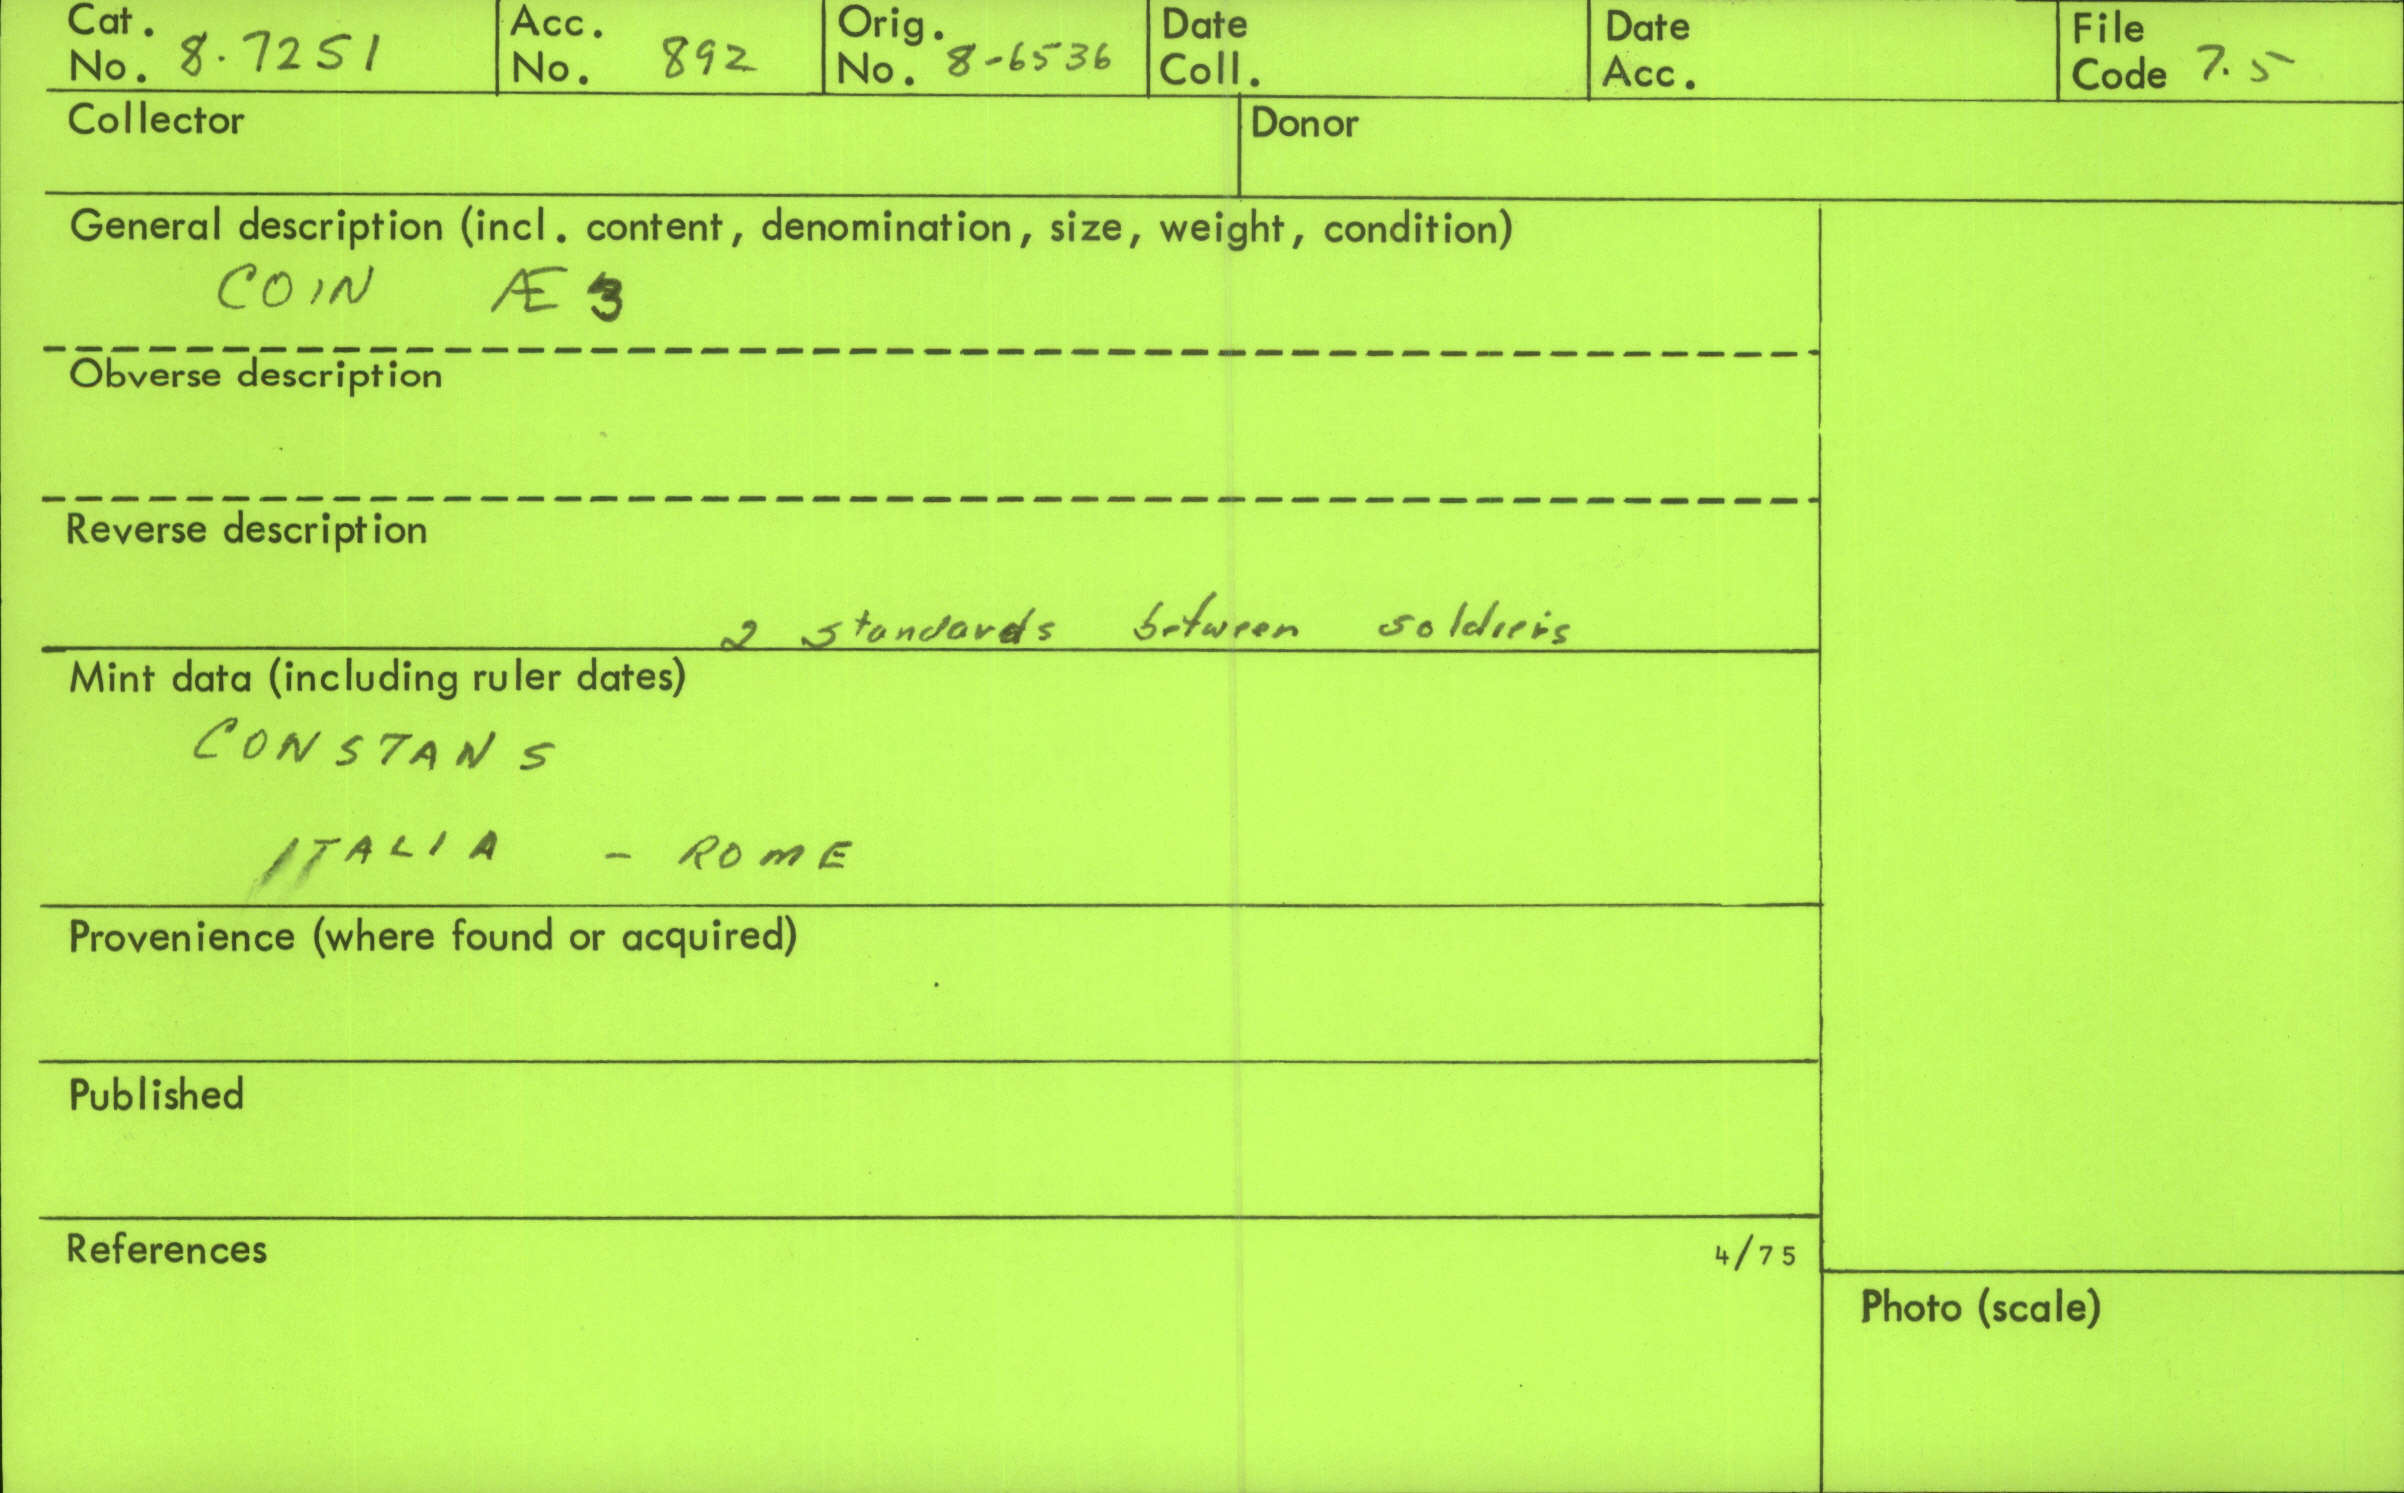 Cat. No. 8.7251
Acc. No. 892
Orig. No. 8-6536
Date Coll.
Date Acc.
File Code 7.5
Collector
Donor
General description (incl. content, denomination, size, weight, condition)
COIN Æ 3
Obverse description
Reverse description
2 standards between soldiers
Mint data (including ruler dates)
CONSTANS
ITALIA - ROME
Provenience (where found or acquired)
Published
References
4/75
Photo (scale)